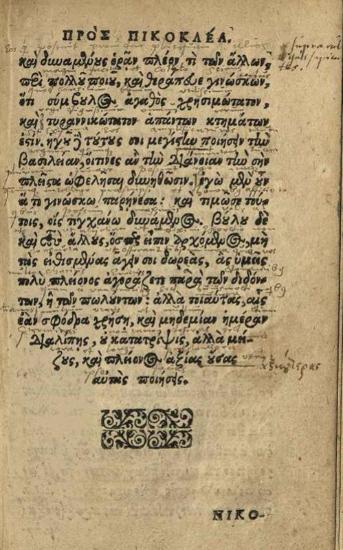 ΠΡΟΣ ΝΙΚΟΚΛΕΑ.
καὶ δυναμένους ὁρᾶν πλέον, τὶ τῶν ἄλλων,
περὶ πολλοῦ ποιοῦ, καὶ θεράπευε γινώσκων,
ὅτι σύμβουλος ἀγαθὸς χρησιμώτατον,
καὶ τυραννικώτατον ἁπάντων κτημάτων
ἐστίν. ἡγοῦ δὲ τούτους σοι μεγίστην ποιήσειν τὴν
βασιλείαν, οἵτινες ἂν τὴν διάνοιαν τὴν σὴν
πλεῖστα ὠφελῆσαι δυνηθῶσιν. ἐγὼ μὲν οὖν
ἅ τι γινώσκω παρήνεσα: καὶ τιμῶ σε τού-
τοις, οἷς τυγχάνω δυνάμενος. βούλου δὲ
καὶ τοὺς ἄλλους, ὥσπερ εἶπον ἀρχόμενος, μὴ
τὰς εἰθισμένας ἄγειν σοι δωρεὰς, ἃς ὑμεῖς
πολὺ πλείονος ἀγοράζετε παρὰ τῶν διδόν-
των, ἢ τῶν πωλούντων: ἀλλὰ τοιαύτας, αἷς
ἐὰν σφόδρα χρήσῃ, καὶ μηδεμίαν ἡμέραν
διαλίπῃς, οὐ κατατρίψεις, ἀλλὰ μεί-
ζους, καὶ πλείονος ἀξίας οὔσας
αὐτὰς ποιήσεις.
ΝΙΚΟ-